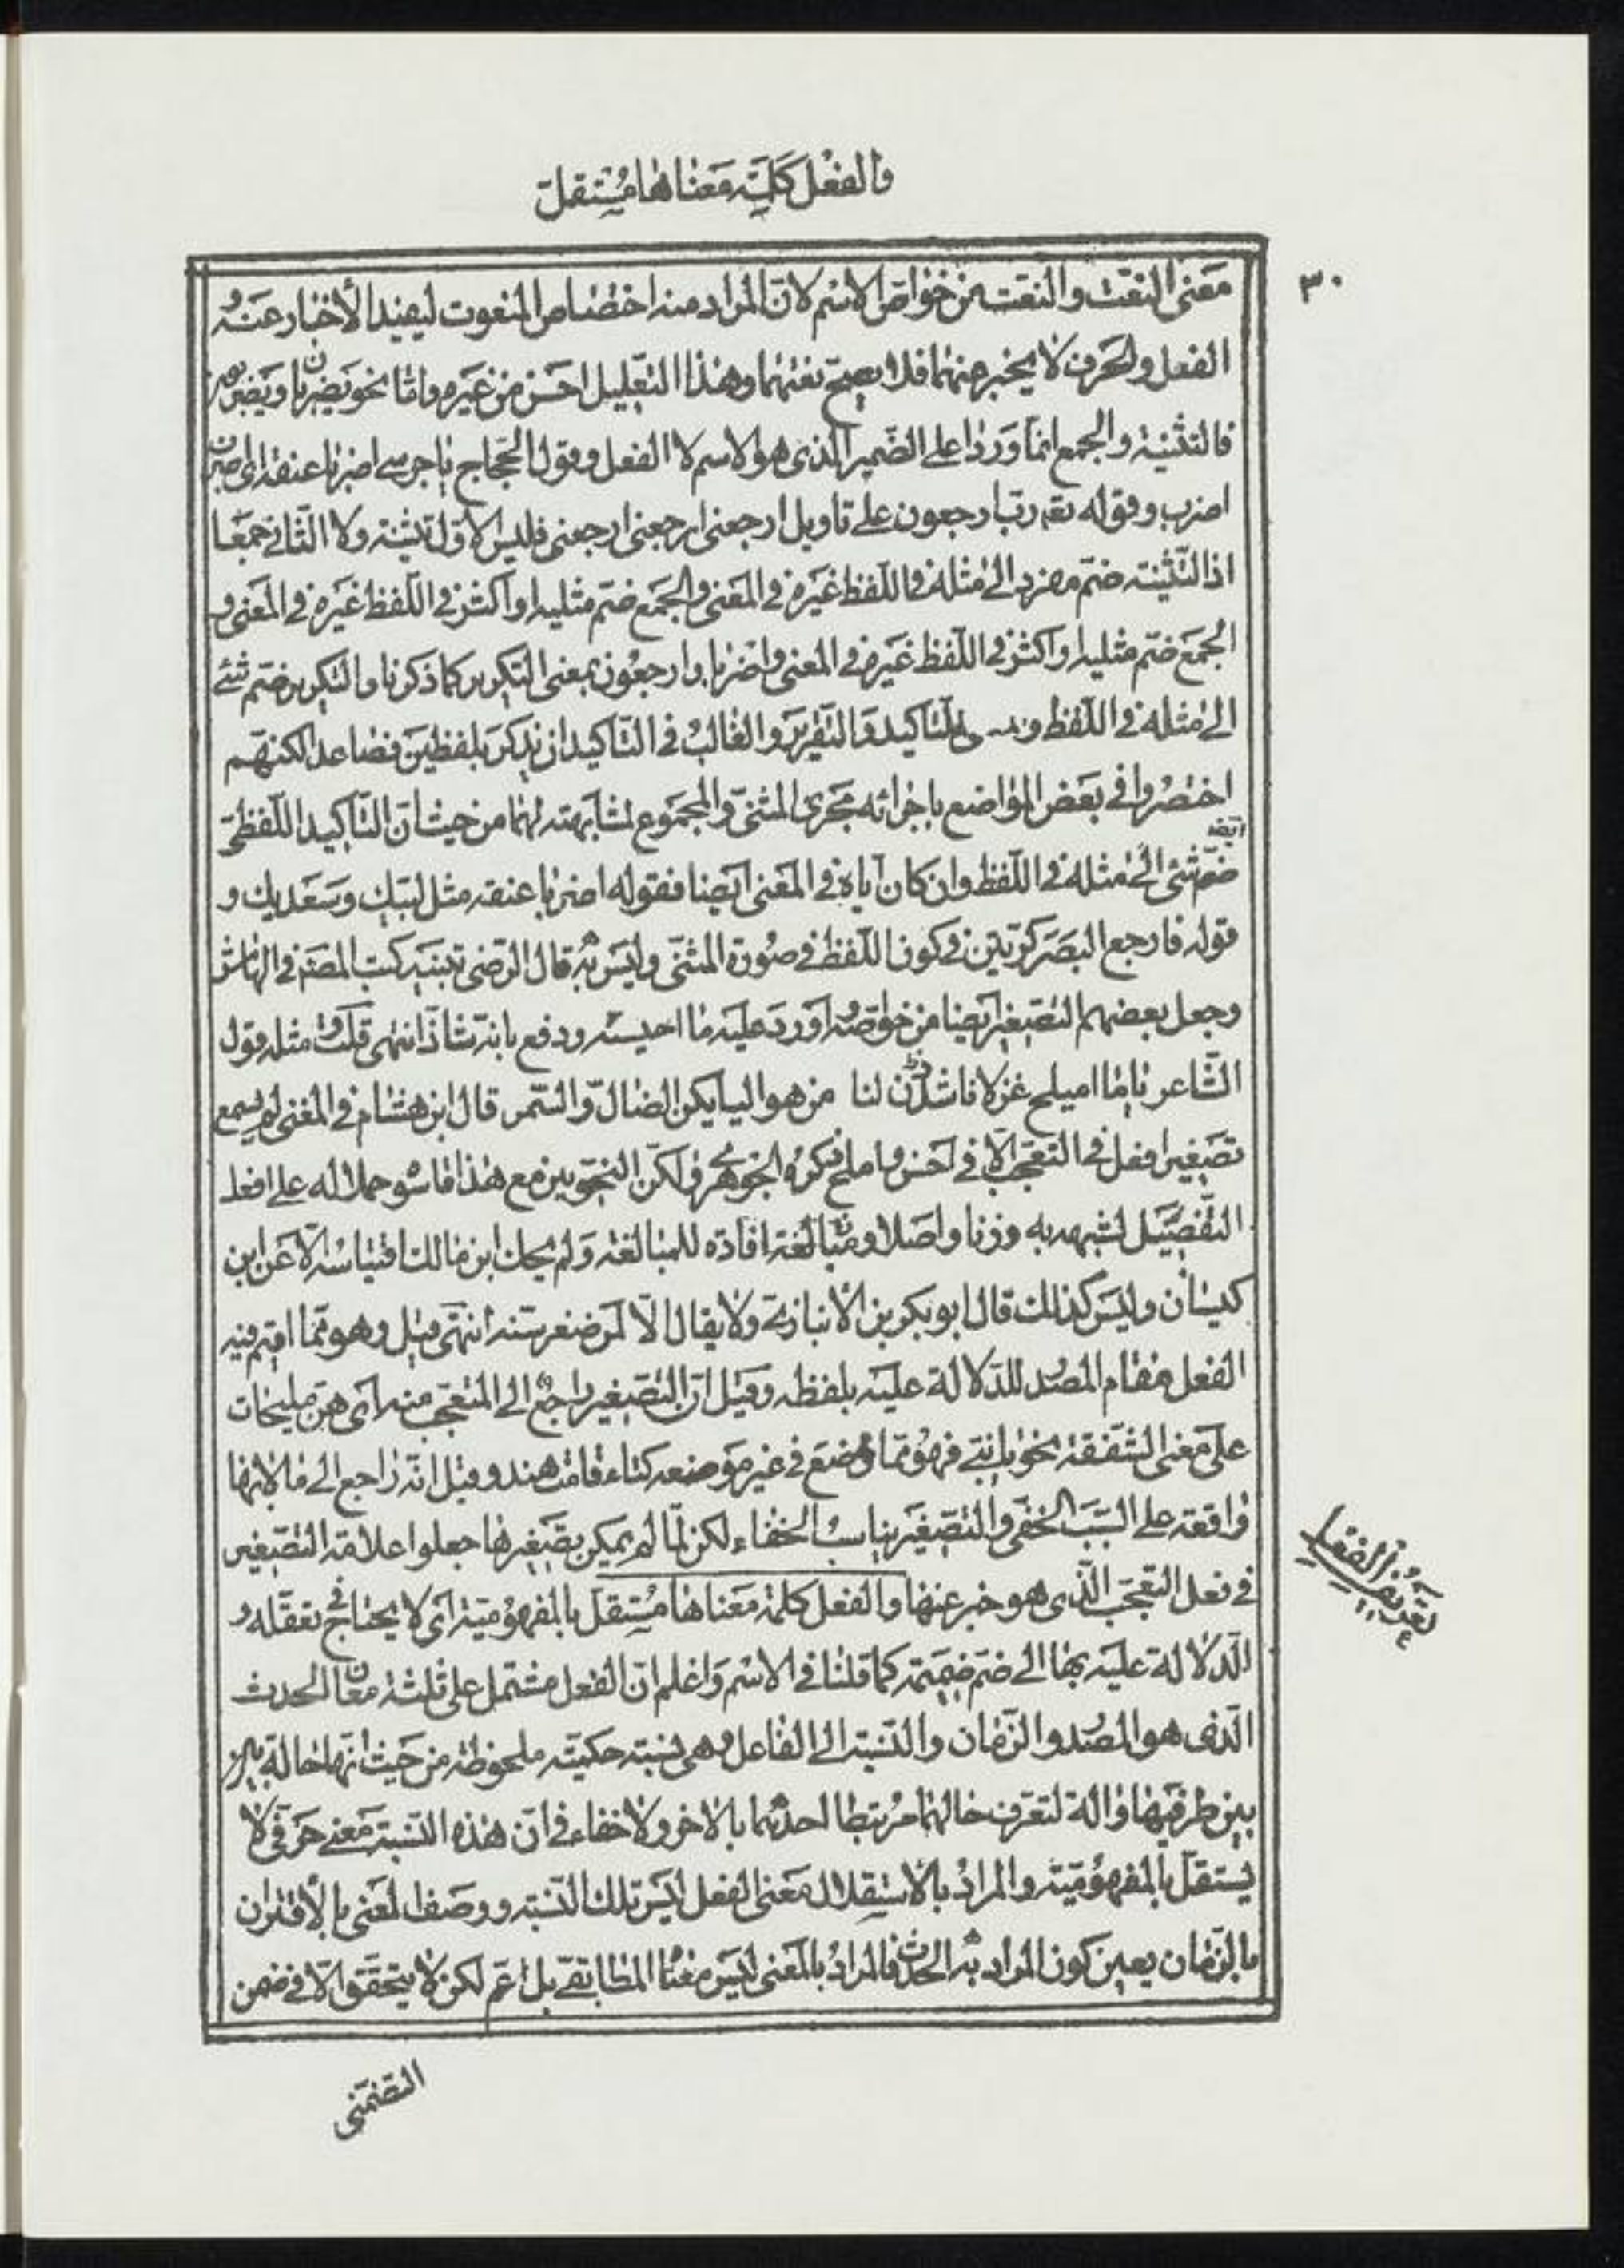 والفعل كلمة معناها مستقل
٣٠
معنى النعت والنعت من خواص الاسم لان المراد منه اختصاص المنعوت ليفيد الأخبار عنه و
الفعل والحرف لا يخبر عنهما فلا يصح نعتهما وهذا التعليل احسن من غيره واما نحو يضربان ويضربون
فالتثنية والجمع انما وردا على الضمير الذى هو الاسم لا الفعل وقول الحجاج يا حرسى اضربا عنقه اى اضرب
اضرب وقوله تعه رب ارجعون على تاويل ارجعنى ارجعنى ارجعنى فليس الاول تثنية ولا الثانى جمعا
اذ التثنية ضم مفرد الى مثله فى اللفظ غيره فى المعنى والجمع ضم مثليه او اكثر فى اللفظ غيره فى المعنى و
الجمع ضم مثليه او اكثر فى اللفظ غيره فى المعنى واضربا وارجعون بمعنى التكرير كما ذكرنا والتكرير ضم شئ
الى مثله فى اللفظ للتاكيد والتقرير والغالب فى التاكيد ان يذكر بلفظين فصاعدا لكنهم
اختصروا فى بعض المواضع باجرائه مجرى المثنى والمجموع لمشابهته لهما من حيث ان التاكيد اللفظى
ايضا
ضم شئ الى مثله فى اللفظ وان كان اياه فى المعنى ايضا فقوله اضربا عنقه مثل لبيك وسعديك و
قوله فارجع البصر كرتين فى كون اللفظ فى صورة المثنى وليس به قال الرضى تنبيه كتب المصنف فى الهامش
وجعل بعضهم التصغير ايضا من خواصه واورد عليه ما احيسنه ودفع بانه شاذ انتهى قلت ومثله قول
الشاعر ياما اميلح غزلانا شدن لنا من هوليائكن الضال والسمر قال ابن هشام فى المغنى ولم يسمع
تصغير افعل فى التعجب الا فى احسن واملح ذكره الجوهرى ولكن النحويين مع هذا قاسوه حملا له على افعل
التفضيل لشبهه به وزنا واصلا ومبالغة افاده للمبالغة ولم يحك ابن مالك اقتياسه الا عن ابن
كيسان وليس كذلك قال ابو بكر بن الأنبارى ولا يقال الا لمن صغر سنه انتهى قيل وهو مما اقيم فيه
الفعل مقام المصدر للدلالة عليه بلفظه وقيل ان التصغير راجع الى المتعجب منه اى هن مليحات
على معنى الشفقة نحو يابنى فهو مما وضع فى غير موضعه كتاء قامت هند وقيل انه راجع الى ما لانها
واقعة على السبب الخفى والتصغير يناسب الخفاء لكن لما لم يمكن تصغيرها جعلوا علامة التصغير
فى فعل التعجب الذى هو خبر عنها والفعل كلمة معناها مستقل بالمفهومية اى لا يحتاج فى تعقله و
تعريف الفعل
الدلالة عليه بها الى ضم ضميمة كما قلنا فى الاسم واعلم ان الفعل مشتمل على ثلثة معان الحدث
الذى هو المصدر والزمان والنسبة الى الفاعل وهى نسبة حكمية ملحوظة من حيث انها حالة
بين طرفيها والة لتعرف حالهما مرتبطا احدهما بالاخر ولا خفاء فى ان هذه النسبة معنى حرفى لا
يستقل بالمفهومية والمراد بالاستقلال معنى الفعل ليس تلك النسبة ووصف المعنى بالأقتران
بالزمان يعين كون المراد به الحدث فالمراد بالمعنى ليس معناه المطابقى بل اعم لكن لا يتحقق الا فى ضمن
التضمنى